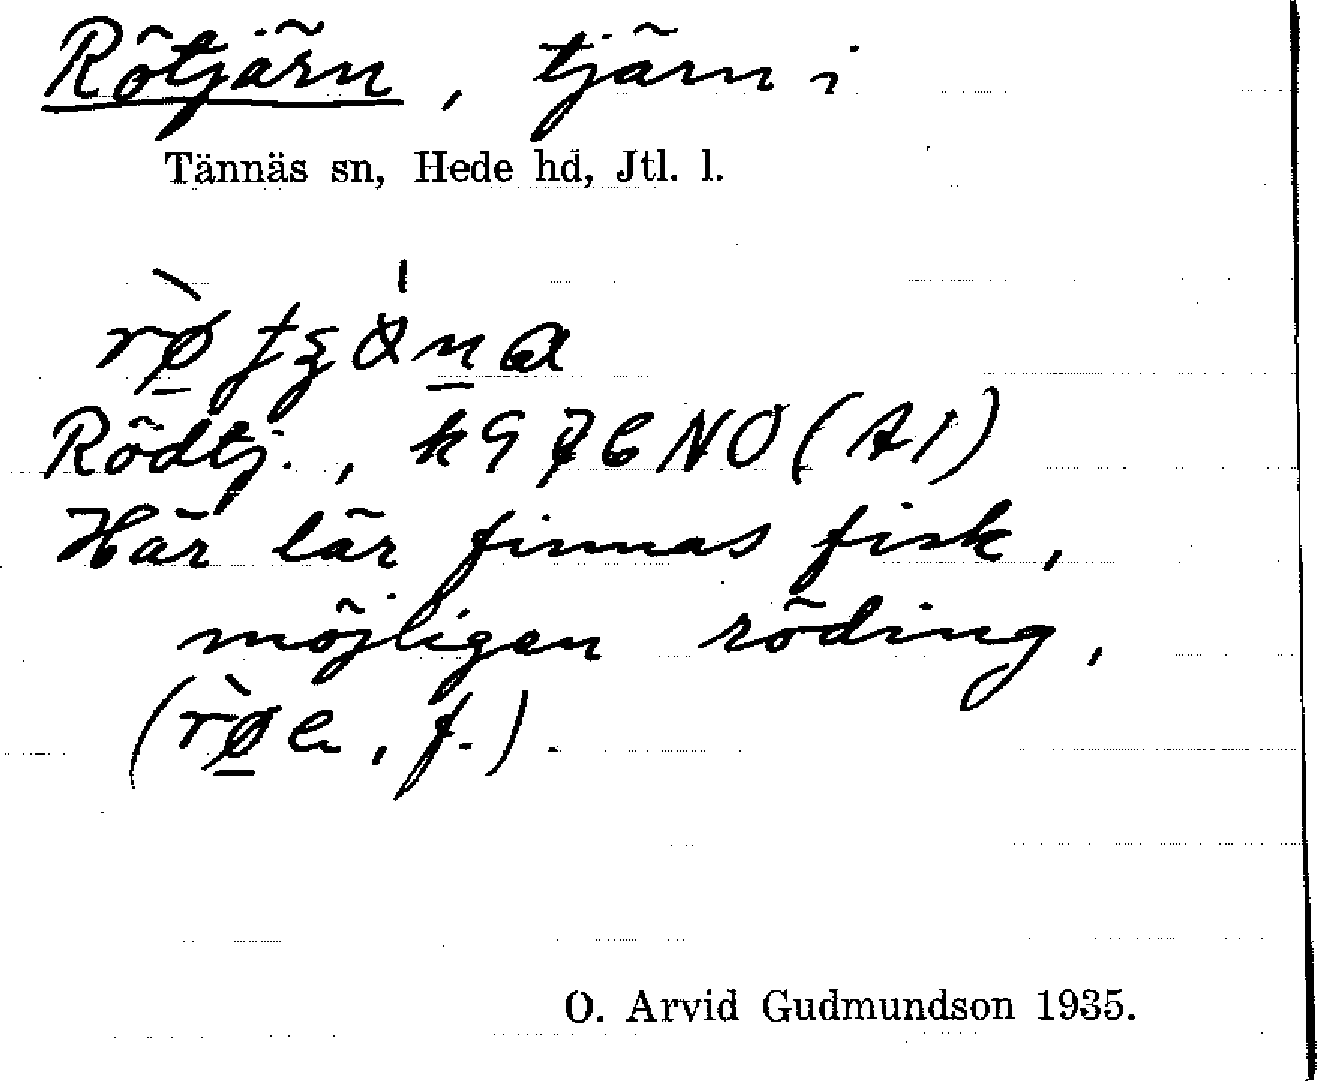 Rötjärn, tjärn i
Tännäs sn, Hede hd, Jtl. l.
Rödtj., k9 NO (A1)
Här lär finnas fisk,
möjligen röding,
(rø̀e, f.).
O. Arvid Gudmundson 1935.